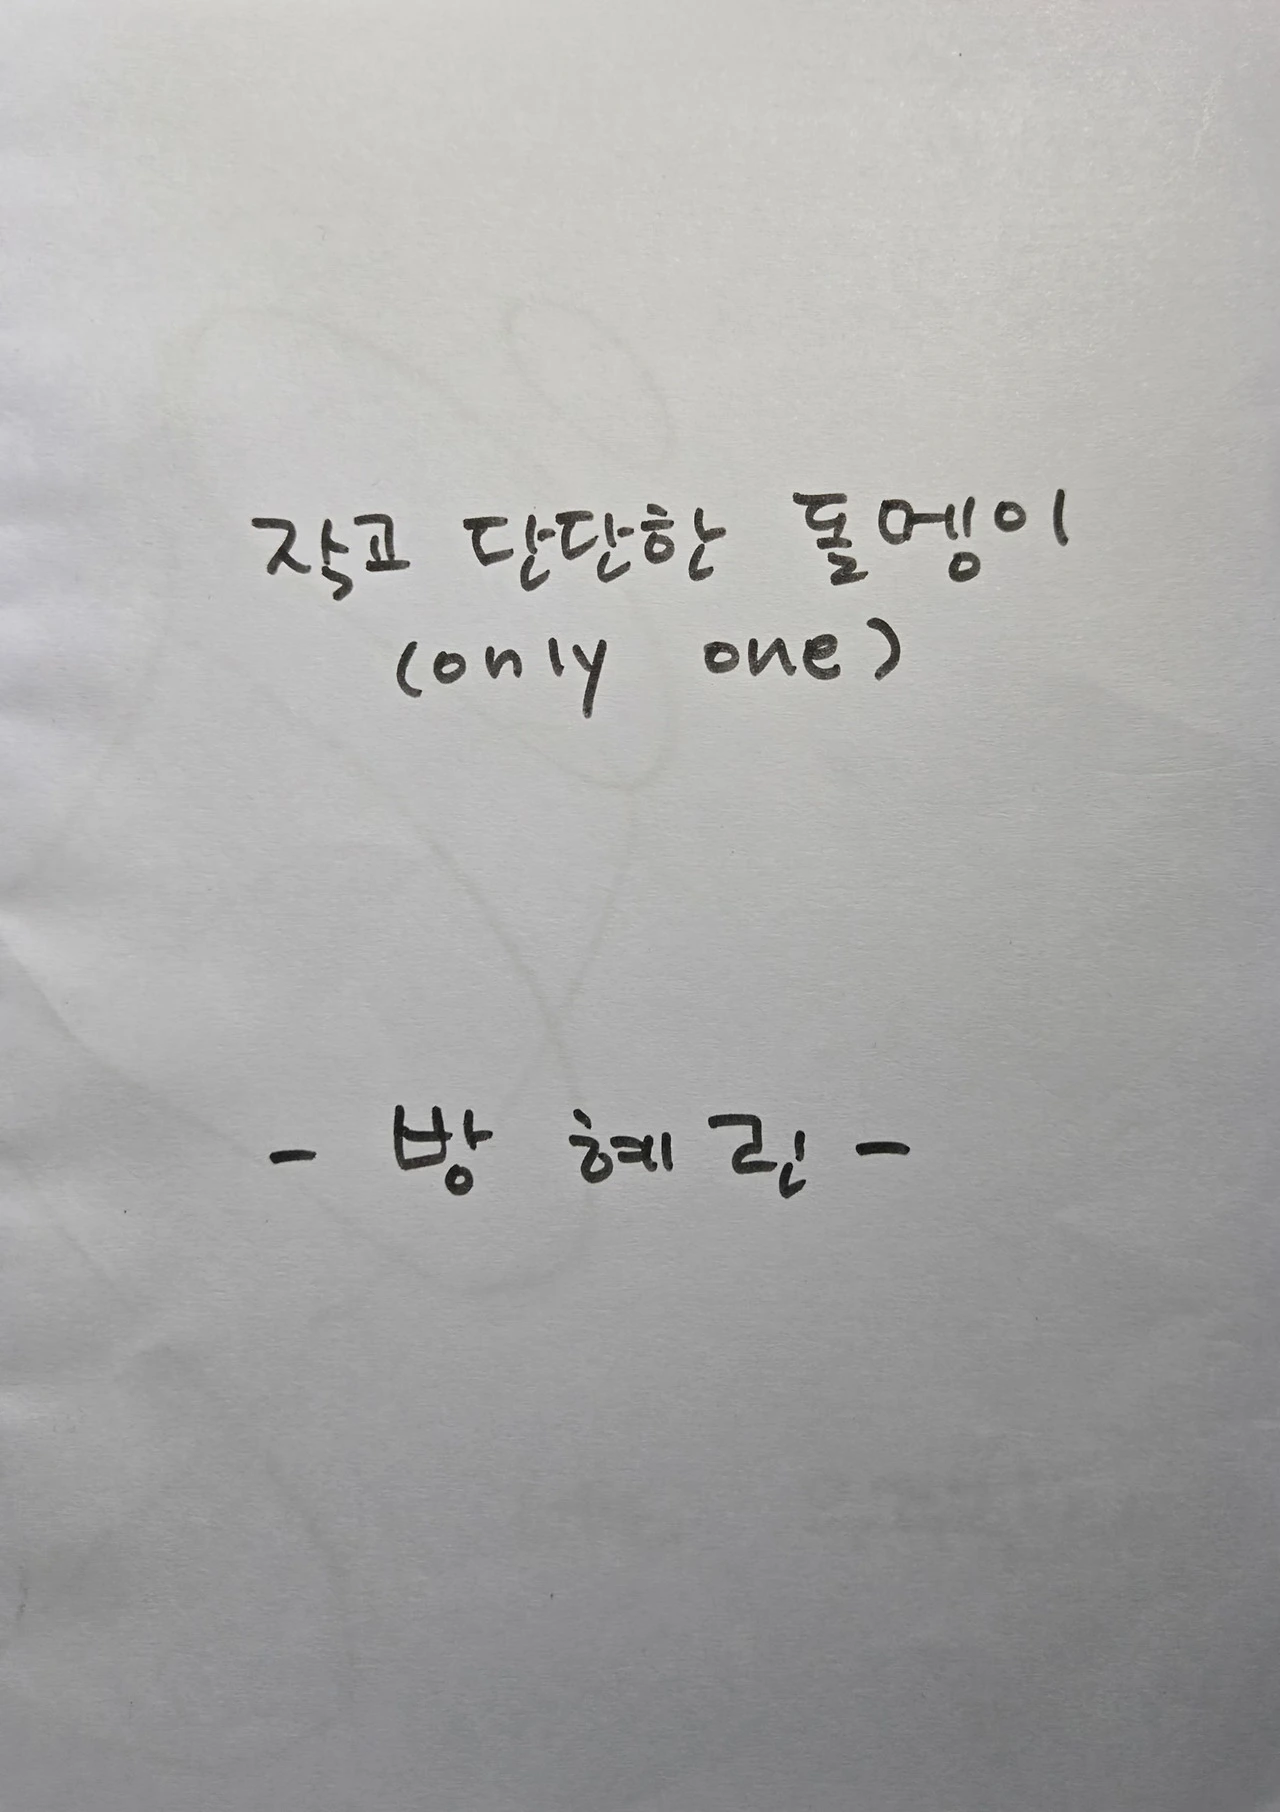 작고 단단한 돌멩이
(only one)
- 방 혜린 -